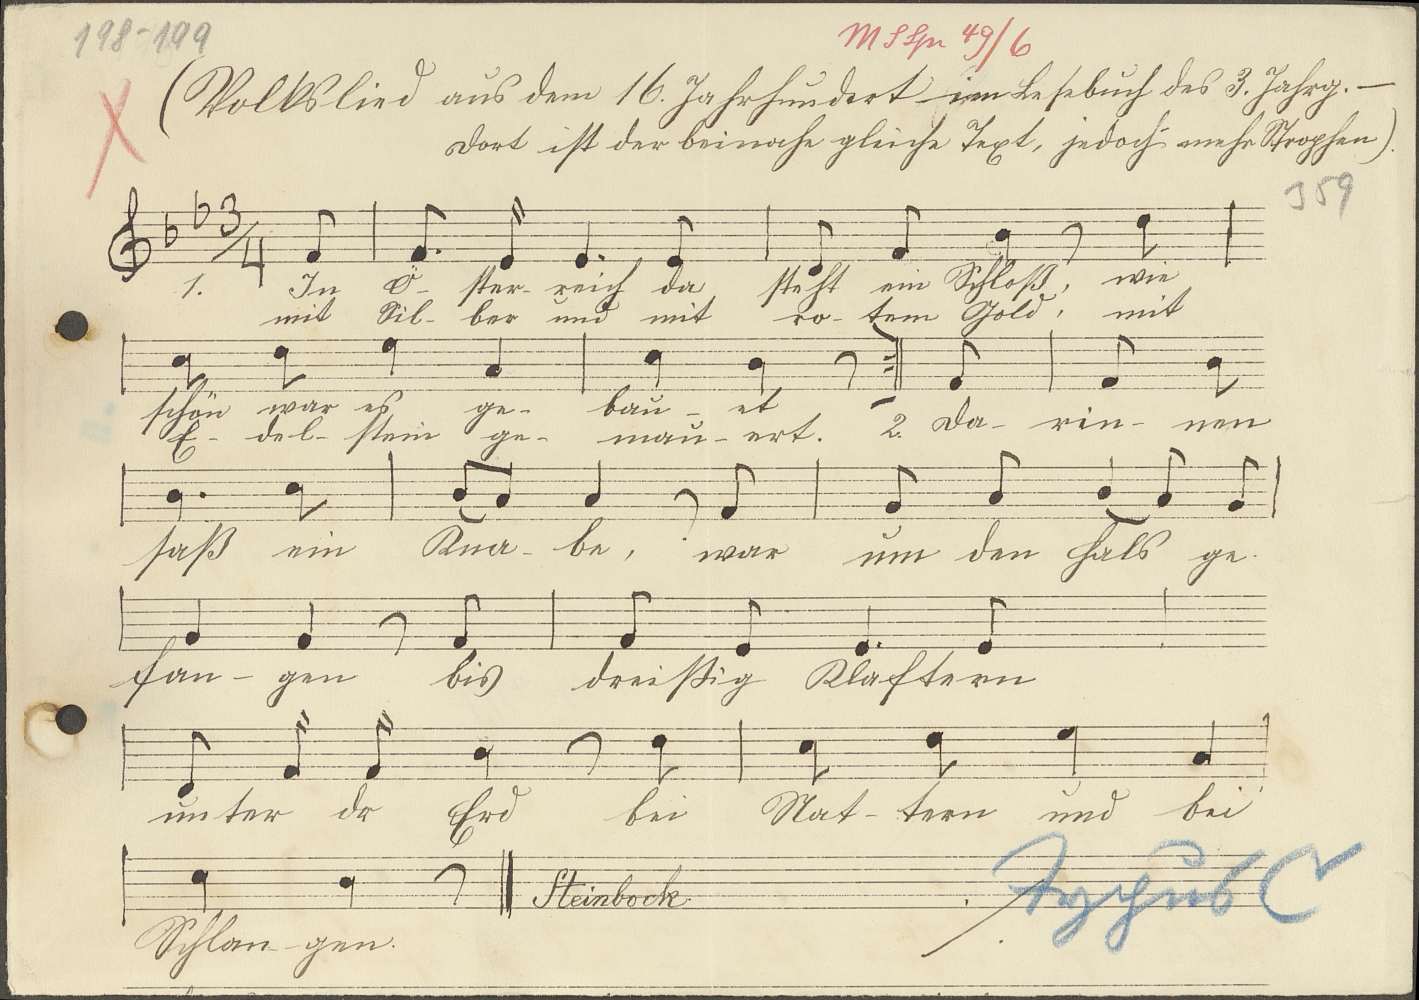 198-199
MSSpr 49/6
(Volkslied aus dem 16. Jahrhundert im Lesebuch des 3. Jahrg. —
dort ist der beinahe gleiche Text, jedoch mehr Strophen).
359
3/4
1. In Ö- ster- reich da steht ein Schloß, wie
mit Sil- ber und mit ro- tem Gold, mit
schön war es ge- bau- et
E- del- stein ge- mau- ert. 2. Da- rin- nen
saß ein Kna- be, war um den Hals ge-
fan- gen bis dreißig Klaftern
unter dr Erd bei Nat- tern und bei
Steinbock.
Typus C
Schlan- gen.